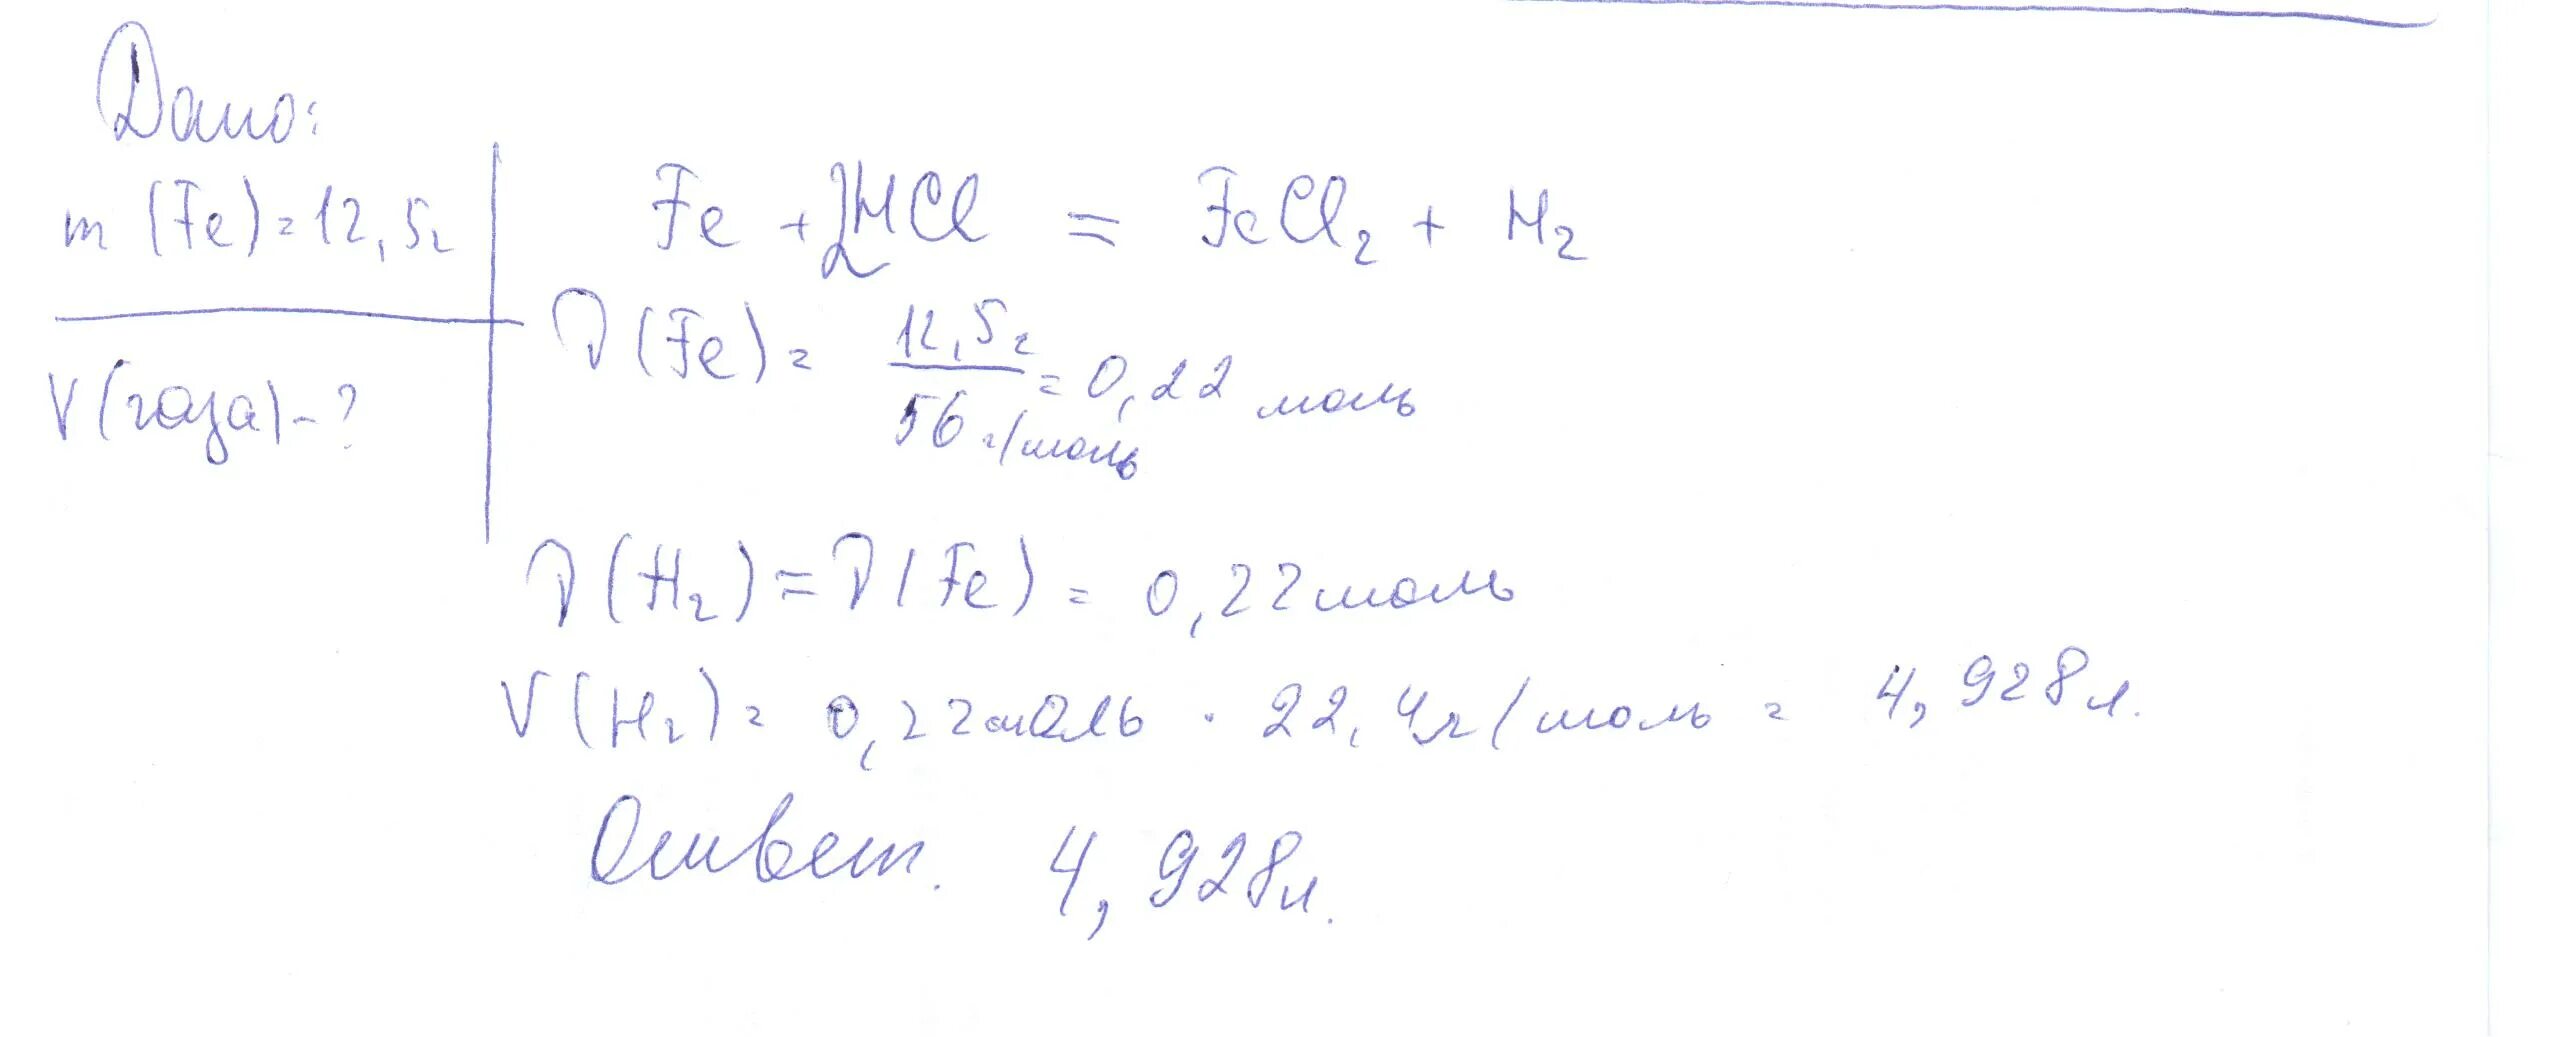 Дано:
m (Fe) = 12,5г
V (газа) - ?
Fe + 2HCl = FeCl₂ + H₂
ν (Fe) = 12,5г / 56 г/моль = 0,22 моль
ν (H₂) = ν (Fe) = 0,22 моль
V (H₂) = 0,22 моль · 22,4л/моль = 4,928л.
Ответ. 4,928л.